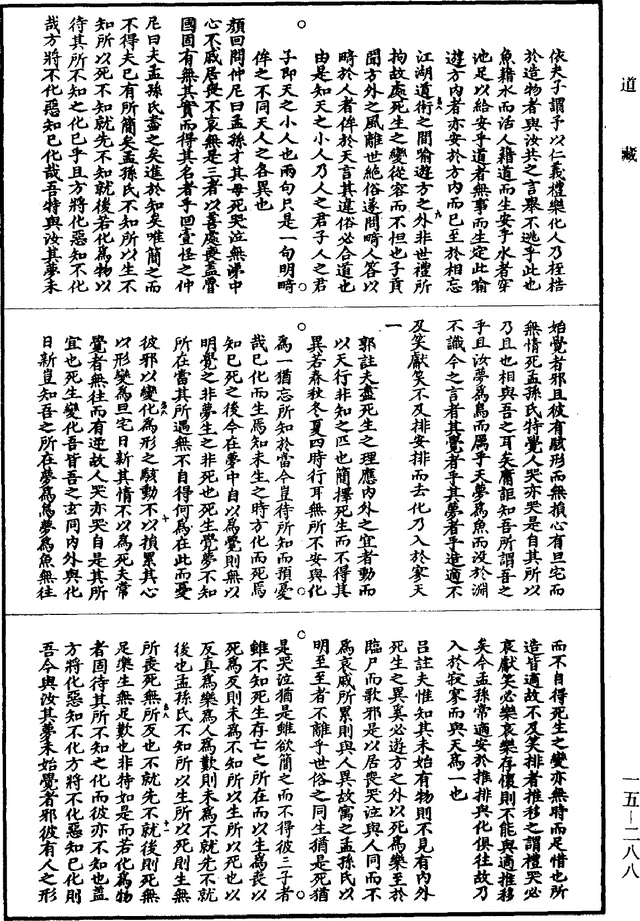 道藏
依夫子謂予以仁義禮樂化人乃桎梏
於造物者與汝共之言聚不逃乎此也
魚藉水而活人藉道而生安乎水者穿
池足以給安乎道者無事而生定此喻
遊方內者亦安於方內而已至於相忘
江湖道術之間喻遊方之外非世禮所
拘故處死生之變從容而不怛也子貢
聞方外之風離世絕俗遂問畸人答以
畸於人者侔於天言其違俗必合道也
由是知天之小人乃人之君子人之君
子即天之小人也兩句只是一句明畸
侔之不同天人之各異也
顏回問仲尼曰孟孫才其母死哭泣無涕中
心不戚居喪不哀無是三者以善處喪蓋魯
國固有無其實而得其名者乎回壹怪之仲
尼曰夫孟孫氏盡之矣進於知矣唯簡之而
不得夫已有所簡矣孟孫氏不知所以生不
知所以死不知就先不知就後若化為物以
待其所不知之化已乎且方將化惡知不化
哉方將不化惡知已化哉吾特與汝其夢未
始覺者邪且彼有駭形而無損心有旦宅而
無情死孟孫氏特覺人哭亦哭是自其所以
乃且也相與吾之耳矣庸詎知吾所謂吾之
乎且汝夢為鳥而厲乎天夢為魚而沒於淵
不識今之言者其覺者乎其夢者乎造適不
及笑獻笑不及排安排而去化乃入於寥天
一
郭註夫盡死生之理應內外之宜者動而
以天行非知之匹也簡擇死生而不得其
異若春秋冬夏四時行耳無所不安與化
為一猶忘所知於當今豈待所知而預憂
哉已化而生焉知未生之時方化而死焉
知已死之後今在夢中自以為覺則無以
明覺之非夢生之非死也死生覺夢不知
所在當其所遇無不自得何為在此而憂
彼邪以變化為形之駭動不以損累其心
以形變為旦宅日新其情不以為死夫常
覺者無往而有逆故人哭亦哭自是其所
宜也死生變化吾皆吾之玄同內外與化
日新豈知吾之所在夢為鳥夢為魚無往
而不自得死生之變亦無時而足惜也所
造皆適故不及笑排者推移之謂禮哭必
哀獻笑必樂哀樂存懷則不能與適推移
矣今孟孫常適安於推排與化俱往故乃
入於寂寥而與天為一也
呂註夫惟知其未始有物則不見有內外
死生之異奚必遊方之外以死為樂至於
臨尸而歌邪是以居喪哭泣與人同而不
為哀戚所累則與人異故寓之孟孫氏以
明至至者不離乎世俗之同生猶是死猶
是哭泣猶是雖欲簡之而不得彼三子者
雖不知死生存亡之所在而以生為喪以
死為反則未為不知所以生所以死也以
反真為樂為人為歎則未為不就先不就
後也孟孫氏不知所以生所以死則生無
所喪死無所反也不就先不就後則死無
足樂生無足歎也非待如是而若化為物
者固待其所不知之化而彼亦不知也蓋
方將化惡知不化方將不化惡知已化則
吾今與汝其夢未始覺者邪彼有人之形
一五—二八八